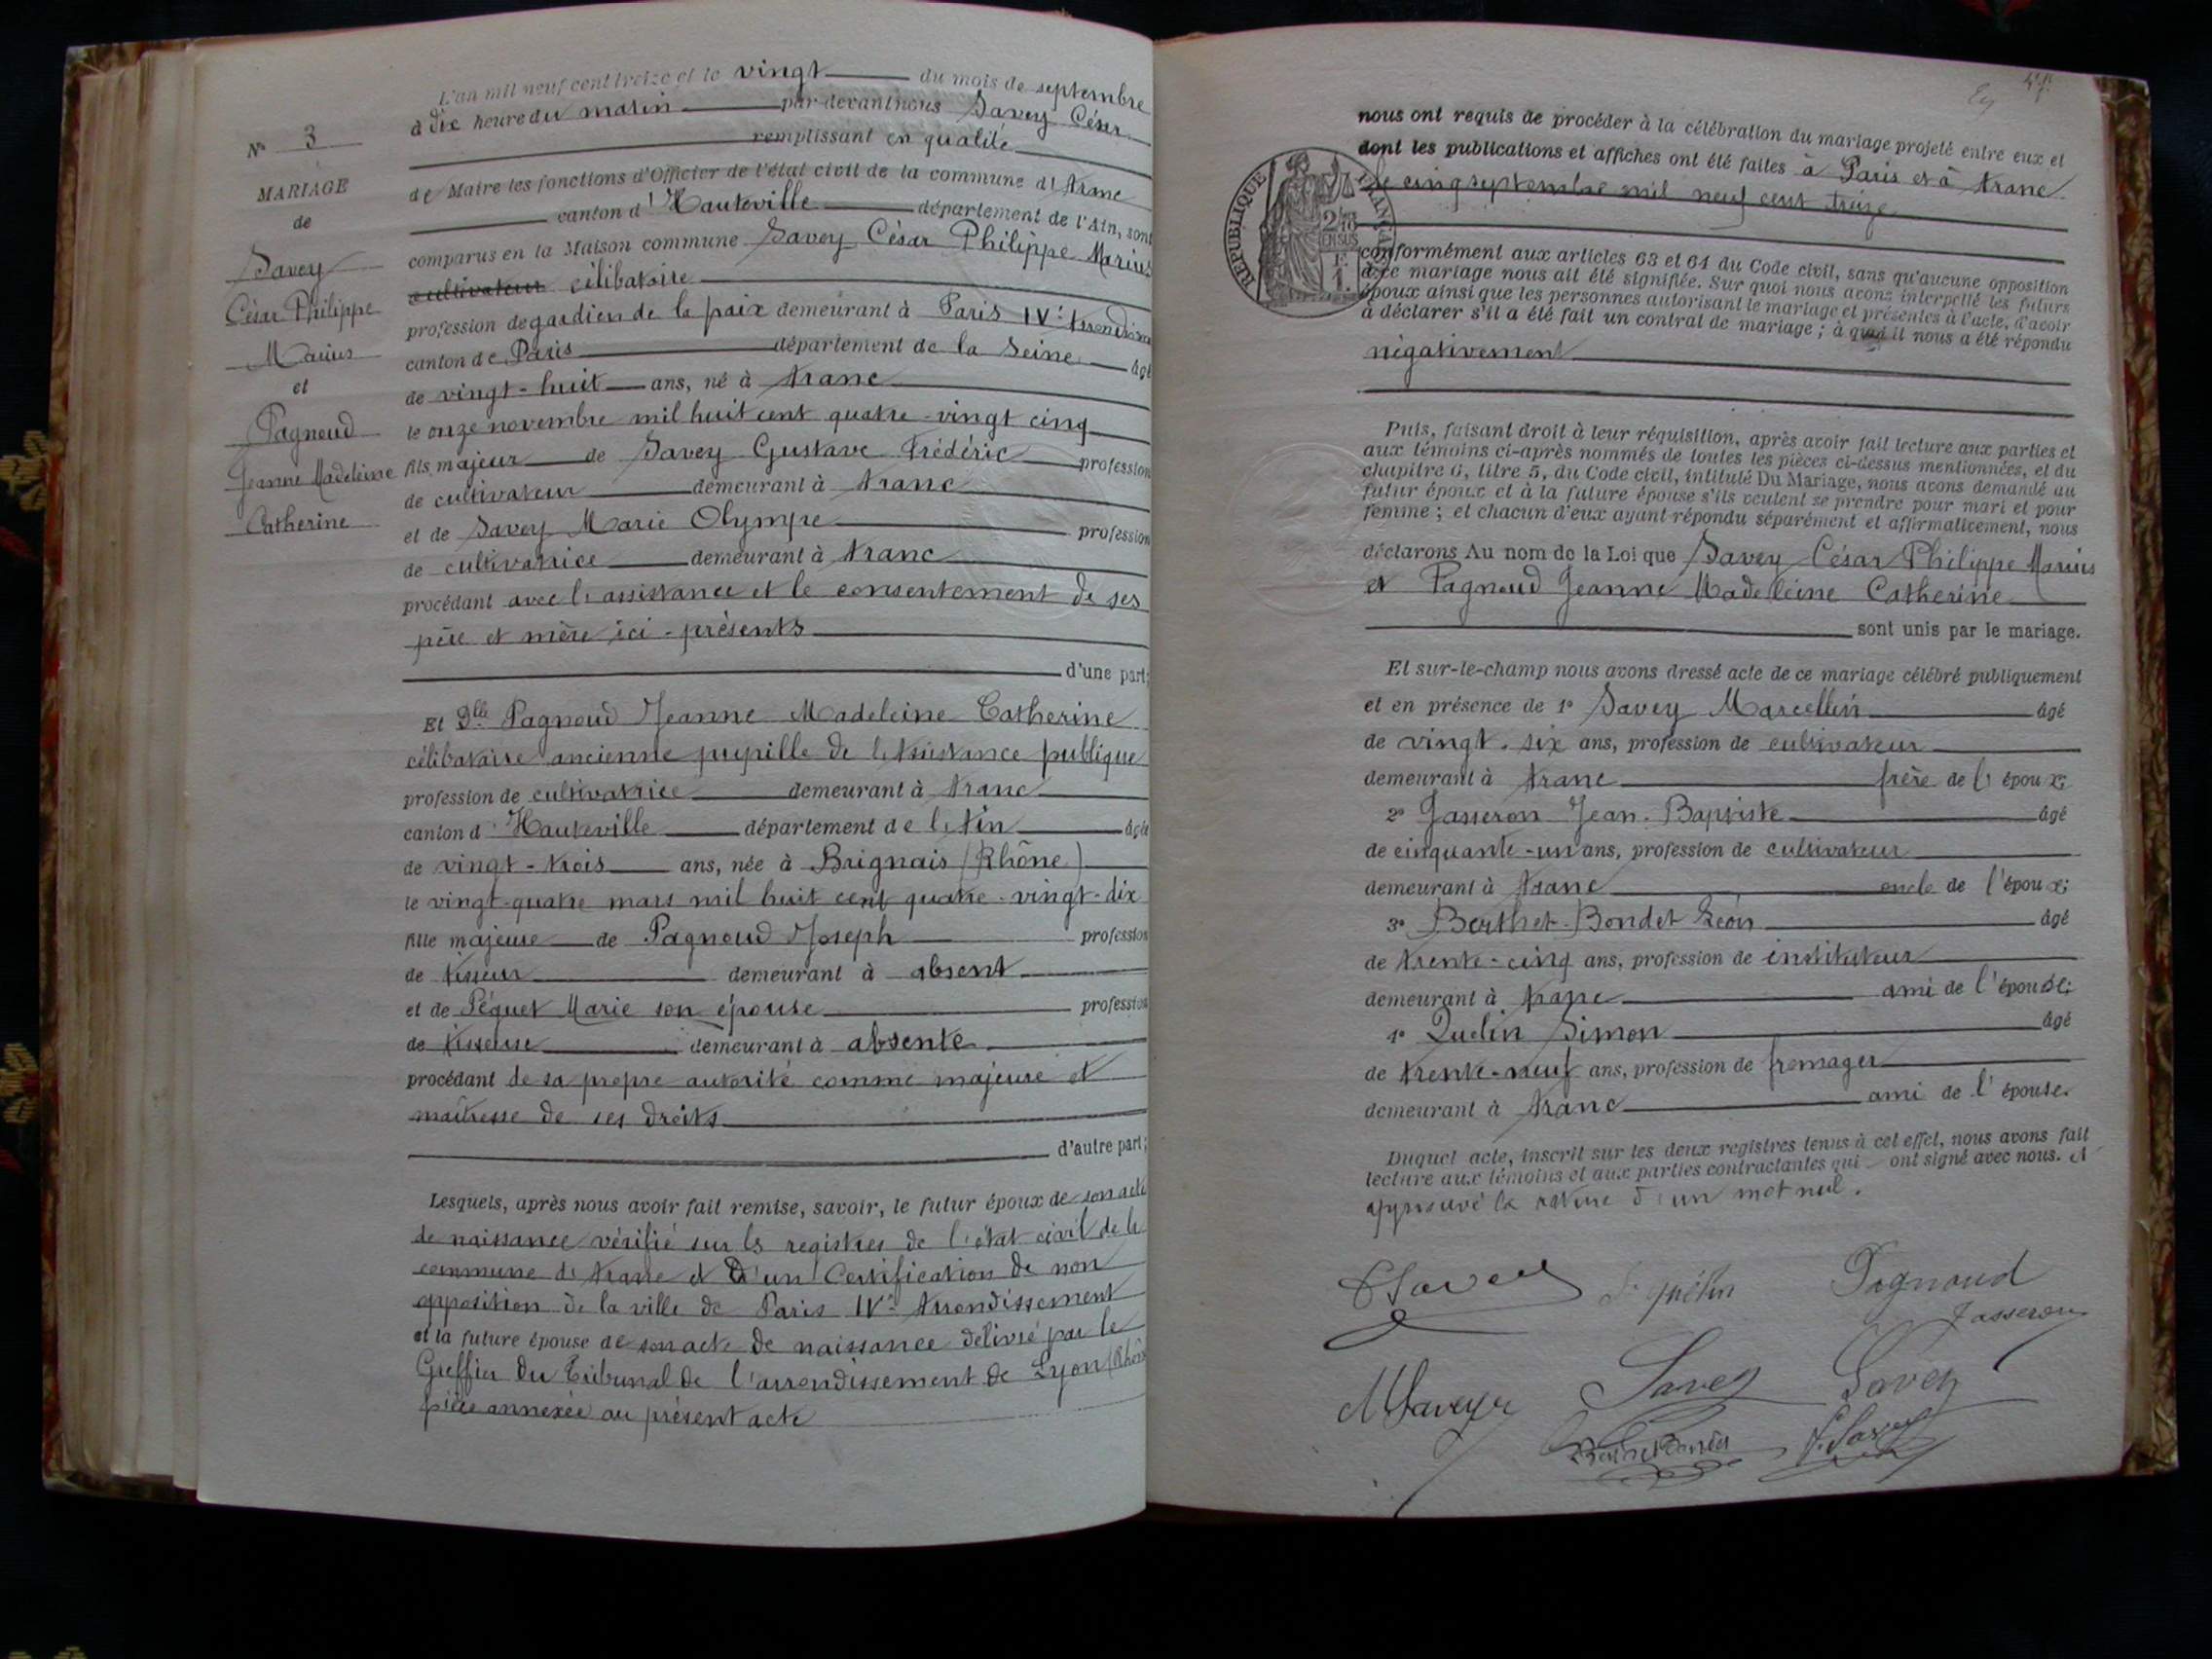 L'an mil neuf cent treize et le vingt du mois de septembre
à dix heure du matin par devant nous Savey César
remplissant en qualité
de Maire les fonctions d'Officier de l'état civil de la commune d'Aranc
canton d'Hauteville département de l'Ain, sont
comparus en la Maison commune Savey César Philippe Marius
cultivateur célibataire
profession de gardien de la paix demeurant à Paris IVe Arrondisse
canton de Paris département de la Seine âgé
de vingt-huit ans, né à Aranc
le onze novembre mil huit cent quatre-vingt cinq
fils majeur de Savey Gustave Frédéric profession
de cultivateur demeurant à Aranc
et de Savey Marie Olympe profession
de cultivatrice demeurant à Aranc
procédant avec l'assistance et le consentement de ses
père et mère ici-présents
d'une part;
Et Dlle Pagnoud Jeanne Madeleine Catherine
célibataire ancienne pupille de l'Assistance publique
profession de cultivatrice demeurant à Aranc
canton d'Hauteville département de l'Ain âgée
de vingt-trois ans, née à Brignais (Rhône)
le vingt-quatre mars mil huit cent quatre-vingt-dix
fille majeure de Pagnoud Joseph profession
de tisseur demeurant à absent
et de Péquet Marie son épouse profession
de tisseuse demeurant à absente
procédant de sa propre autorité comme majeure et
maîtresse de ses droits
d'autre part;
Lesquels, après nous avoir fait remise, savoir, le futur époux de son acte
de naissance vérifié sur les registres de l'état civil de la
commune d'Aranc et d'un Certification de non
opposition de la ville de Paris IVe Arrondissement
et la future épouse de son acte de naissance délivré par le
Greffier du Tribunal de l'arrondissement de Lyon (Rhône
pièce annexée au présent acte
N° 3
MARIAGE
de
Savey
César Philippe
Marius
et
Pagnoud
Jeanne Madeleine
Catherine
nous ont requis de procéder à la célébration du mariage projeté entre eux et
dont les publications et affiches ont été faites à Paris et à Aranc
le cinq septembre mil neuf cent treize
conformément aux articles 63 et 64 du Code civil, sans qu'aucune opposition
à ce mariage nous ait été signifiée. Sur quoi nous avons interpellé les futurs
époux ainsi que les personnes autorisant le mariage et présentes à l'acte, d'avoir
à déclarer s'il a été fait un contrat de mariage ; à quoi il nous a été répondu
négativement
Puis, faisant droit à leur réquisition, après avoir fait lecture aux parties et
aux témoins ci-après nommés de toutes les pièces ci-dessus mentionnées, et du
chapitre 6, titre 5, du Code civil, intitulé Du Mariage, nous avons demandé au
futur époux et à la future épouse s'ils veulent se prendre pour mari et pour
femme ; et chacun d'eux ayant répondu séparément et affirmativement, nous
déclarons Au nom de la Loi que Savey César Philippe Marius
et Pagnoud Jeanne Madeleine Catherine
sont unis par le mariage.
Et sur-le-champ nous avons dressé acte de ce mariage célébré publiquement
et en présence de 1° Savey Marcellin âgé
de vingt-six ans, profession de cultivateur
demeurant à Aranc frère de l'époux;
2° Jasseron Jean-Baptiste âgé
de cinquante-un ans, profession de cultivateur
demeurant à Aranc oncle de l'époux;
3° Berthet-Bondet Léon âgé
de trente-cinq ans, profession de instituteur
demeurant à Aranc ami de l'épouse;
4° Quélin Simon âgé
de trente-neuf ans, profession de fromager
demeurant à Aranc ami de l'épouse.
Duquel acte, inscrit sur les deux registres tenus à cet effet, nous avons fait
lecture aux témoins et aux parties contractantes qui ont signé avec nous. et
approuvé la rature d'un mot nul.
CSavey S. Quélin Pagnoud
Jasseron
MSavey Savey Savey
Berthet Bondet
RÉPUBLIQUE FRANÇAISE
2/10
EN SUS
F.
1.